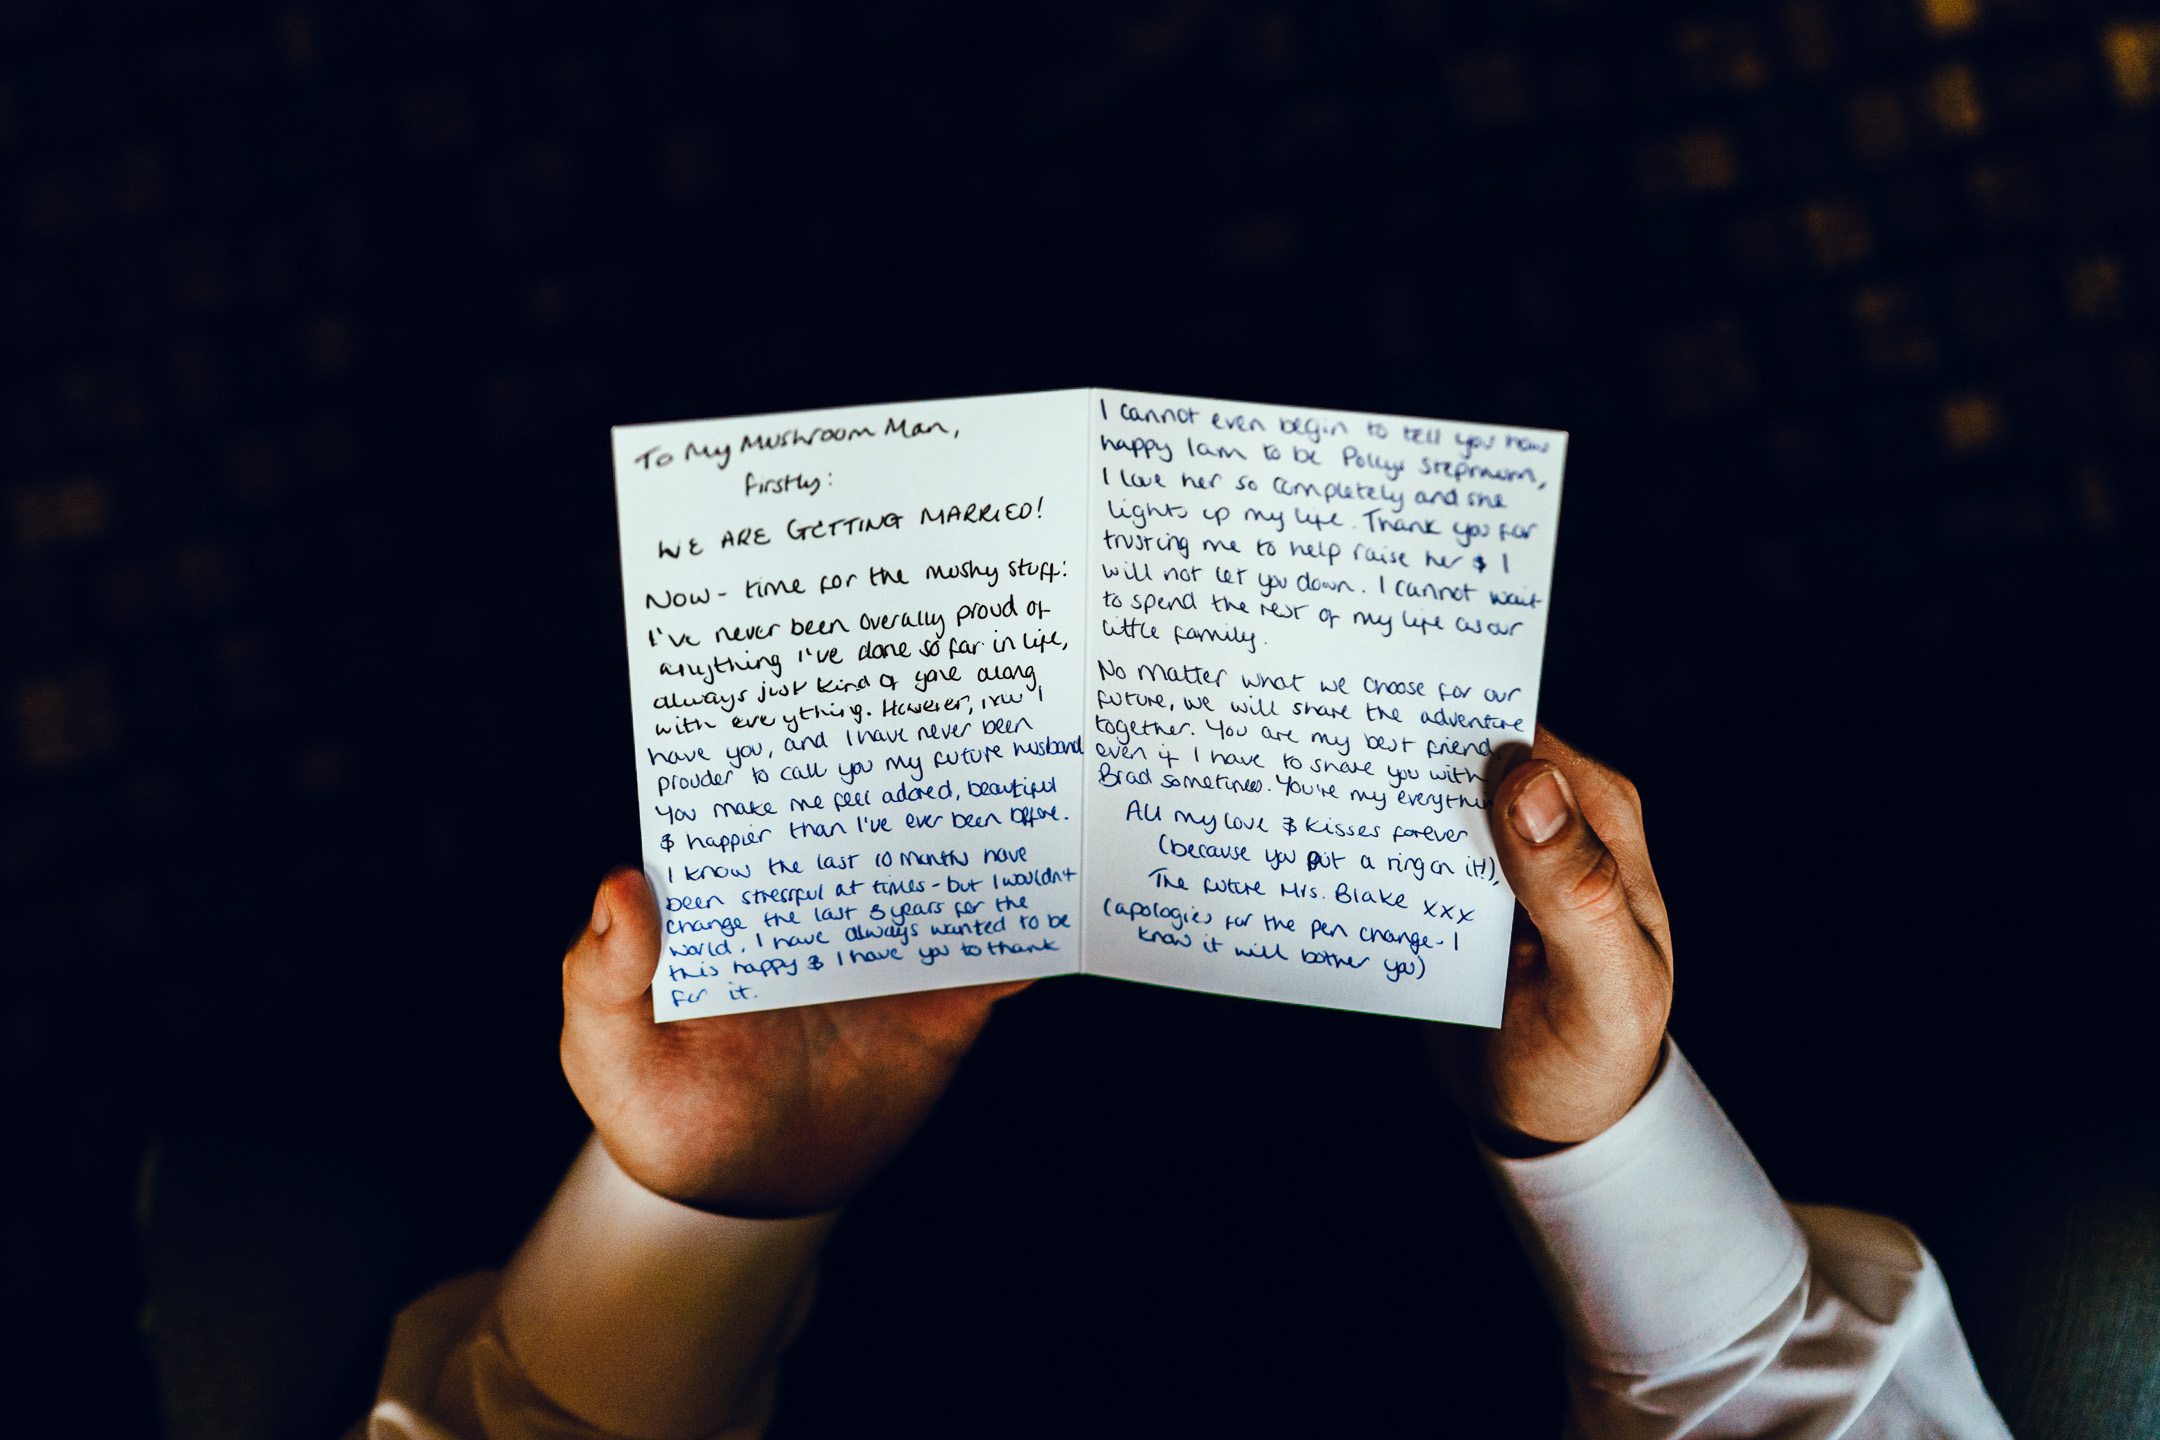 To My Mushroom Man,
firstly:
WE ARE GETTING MARRIED!
Now - time for the mushy stuff:
I've never been overally proud of
anything I've done so far in life,
always just kind of gone along
with everything. However, now I
have you, and I have never been
prouder to call you my future husband
You make me feel adored, beautiful
& happier than I've ever been before.
I know the last 10 months have
been stressful at times - but I wouldn't
change the last 3 years for the
world. I have always wanted to be
this happy & I have you to thank
for it.
I cannot even begin to tell you how
happy I am to be Pollys stepmum,
I love her so completely and she
lights up my life. Thank you for
trusting me to help raise her & I
will not let you down. I cannot wait
to spend the rest of my life as our
little family.
No matter what we choose for our
future, we will share the adventure
together. You are my best friend,
even if I have to share you with
Brad sometimes. You're my everythin
All my love & kisses forever
(because you put a ring on it!),
The future Mrs. Blake xxx
(apologies for the pen change - I
know it will bother you)